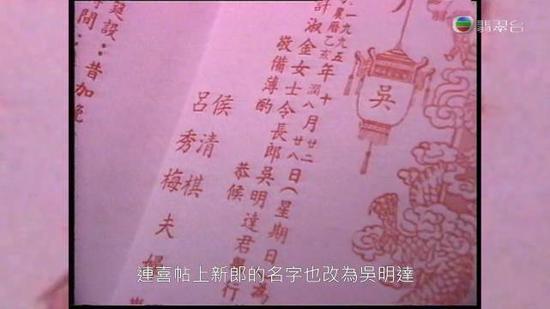 翡翠台
吳
一九九五
農曆乙亥
年十月廿二日(星期日為
閏八 廿八
計淑金女士令長郎吳明達君
行
敬備薄酌
恭候
侯清棋
呂秀梅夫婦
設：
間：昔加
連喜帖上新郎的名字也改為吳明達